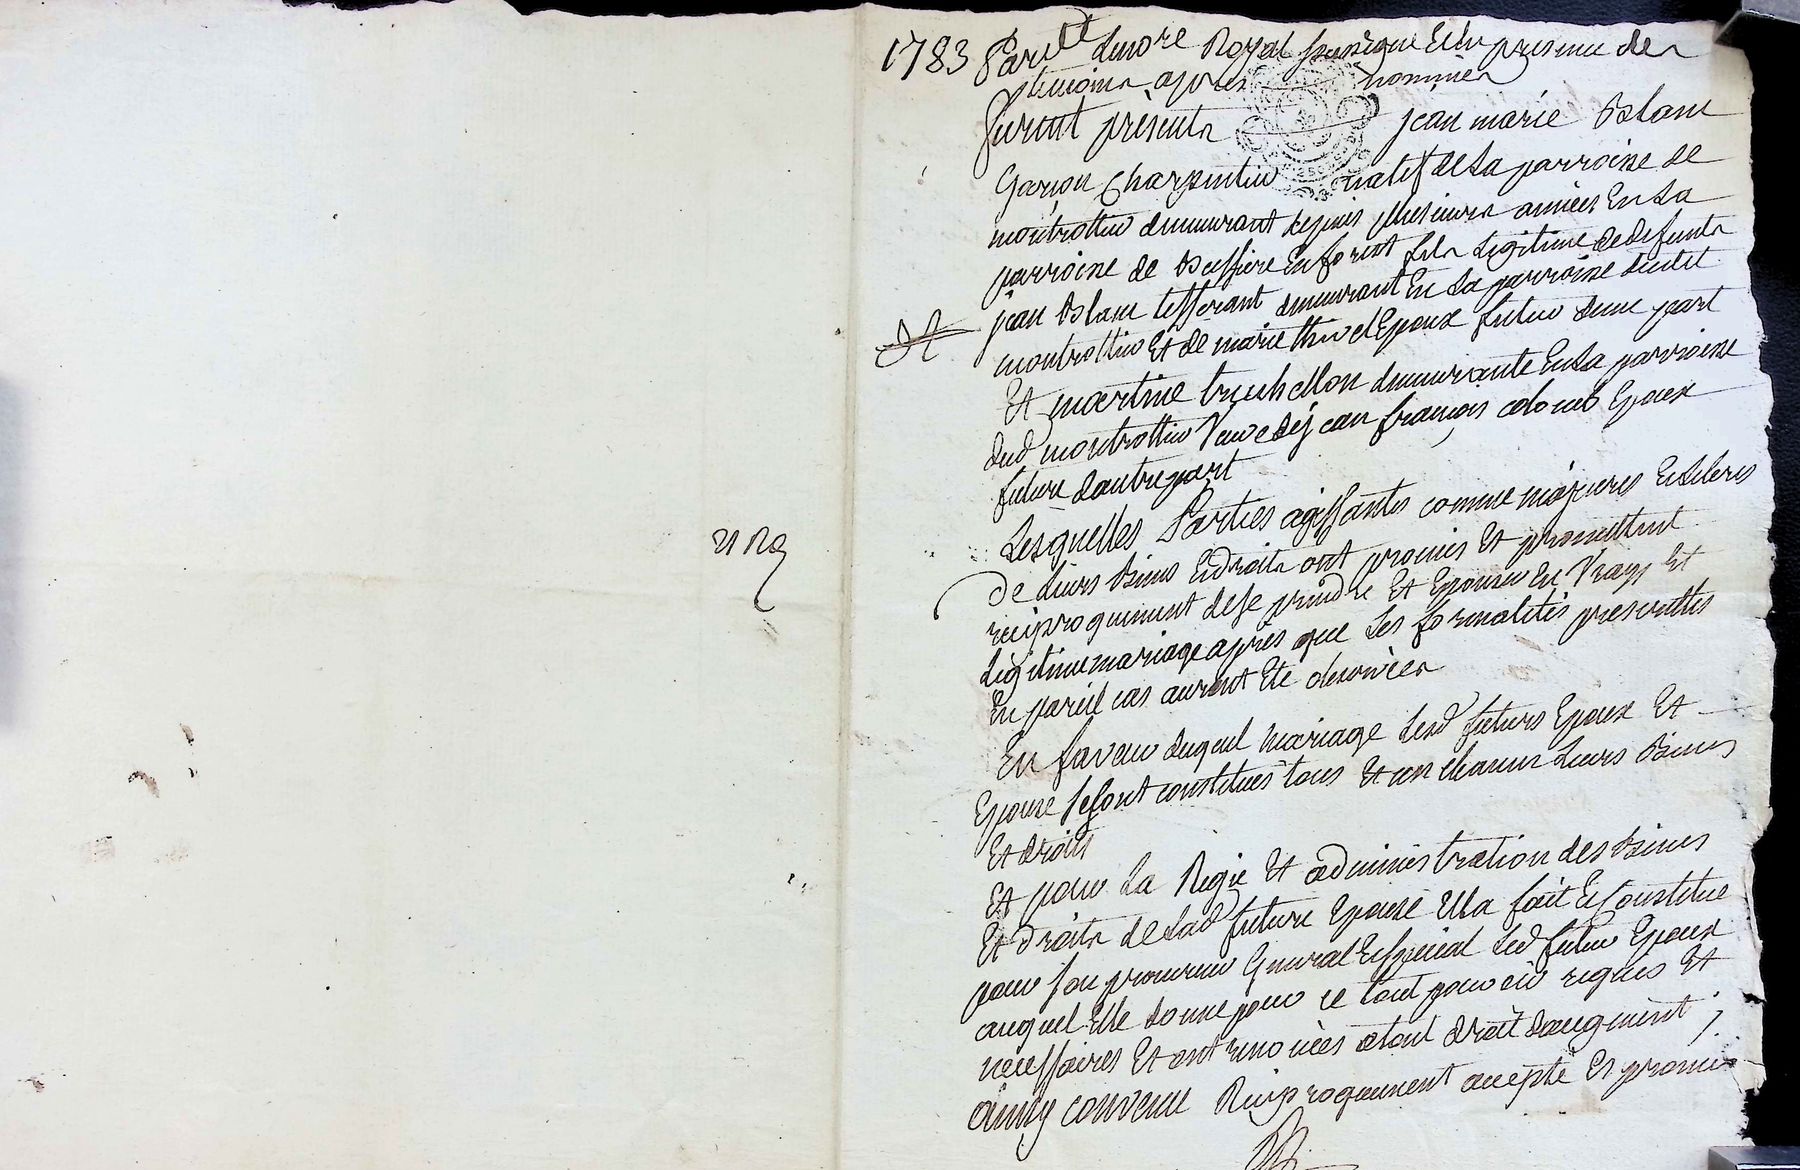 21 Rg
1783 Par dt Le nore Royal soussigne Et En presence des
temoins apres nommés
furent présents jean marie Blanc
Garçon Charpentier natif de La parroisse de
montrottier demeurant depuis plusieurs années En La
parroisse de Bussiere En forest fils Legitime de defunts
jean Blanc tisserant demeurant En La parroisse dudit
montrottier Et de marie Epoux futur dune part
Et martine demeurante En La parroisse
dud montrottier Veuve de jean françois Epouse
future dautre part
Lesquelles Parties agissantes comme majeures Et libres
De Leurs Biens Et droits ont promis Et promettent
reciproquement de se prendre Et Epouser En Vray Et
Legitime mariage apres que Les formalités prescrittes
En pareil cas auront Eté observées
En faveur duquel mariage Lesd futurs Epoux Et
Epouse se sont constitués tous Et un chacun Leurs Biens
Et droits
Et pour La Regie Et administration des Biens
Et droits de Lad future Epouse Elle a fait Et Constitué
pour son procureur General Et special Led futur Epoux
auquel Elle donne pour ce tout pouvoir requis Et
necessaires Et ont renoncées a tout droit daugment
ainsy convenu Reciproquement accepté Et promis